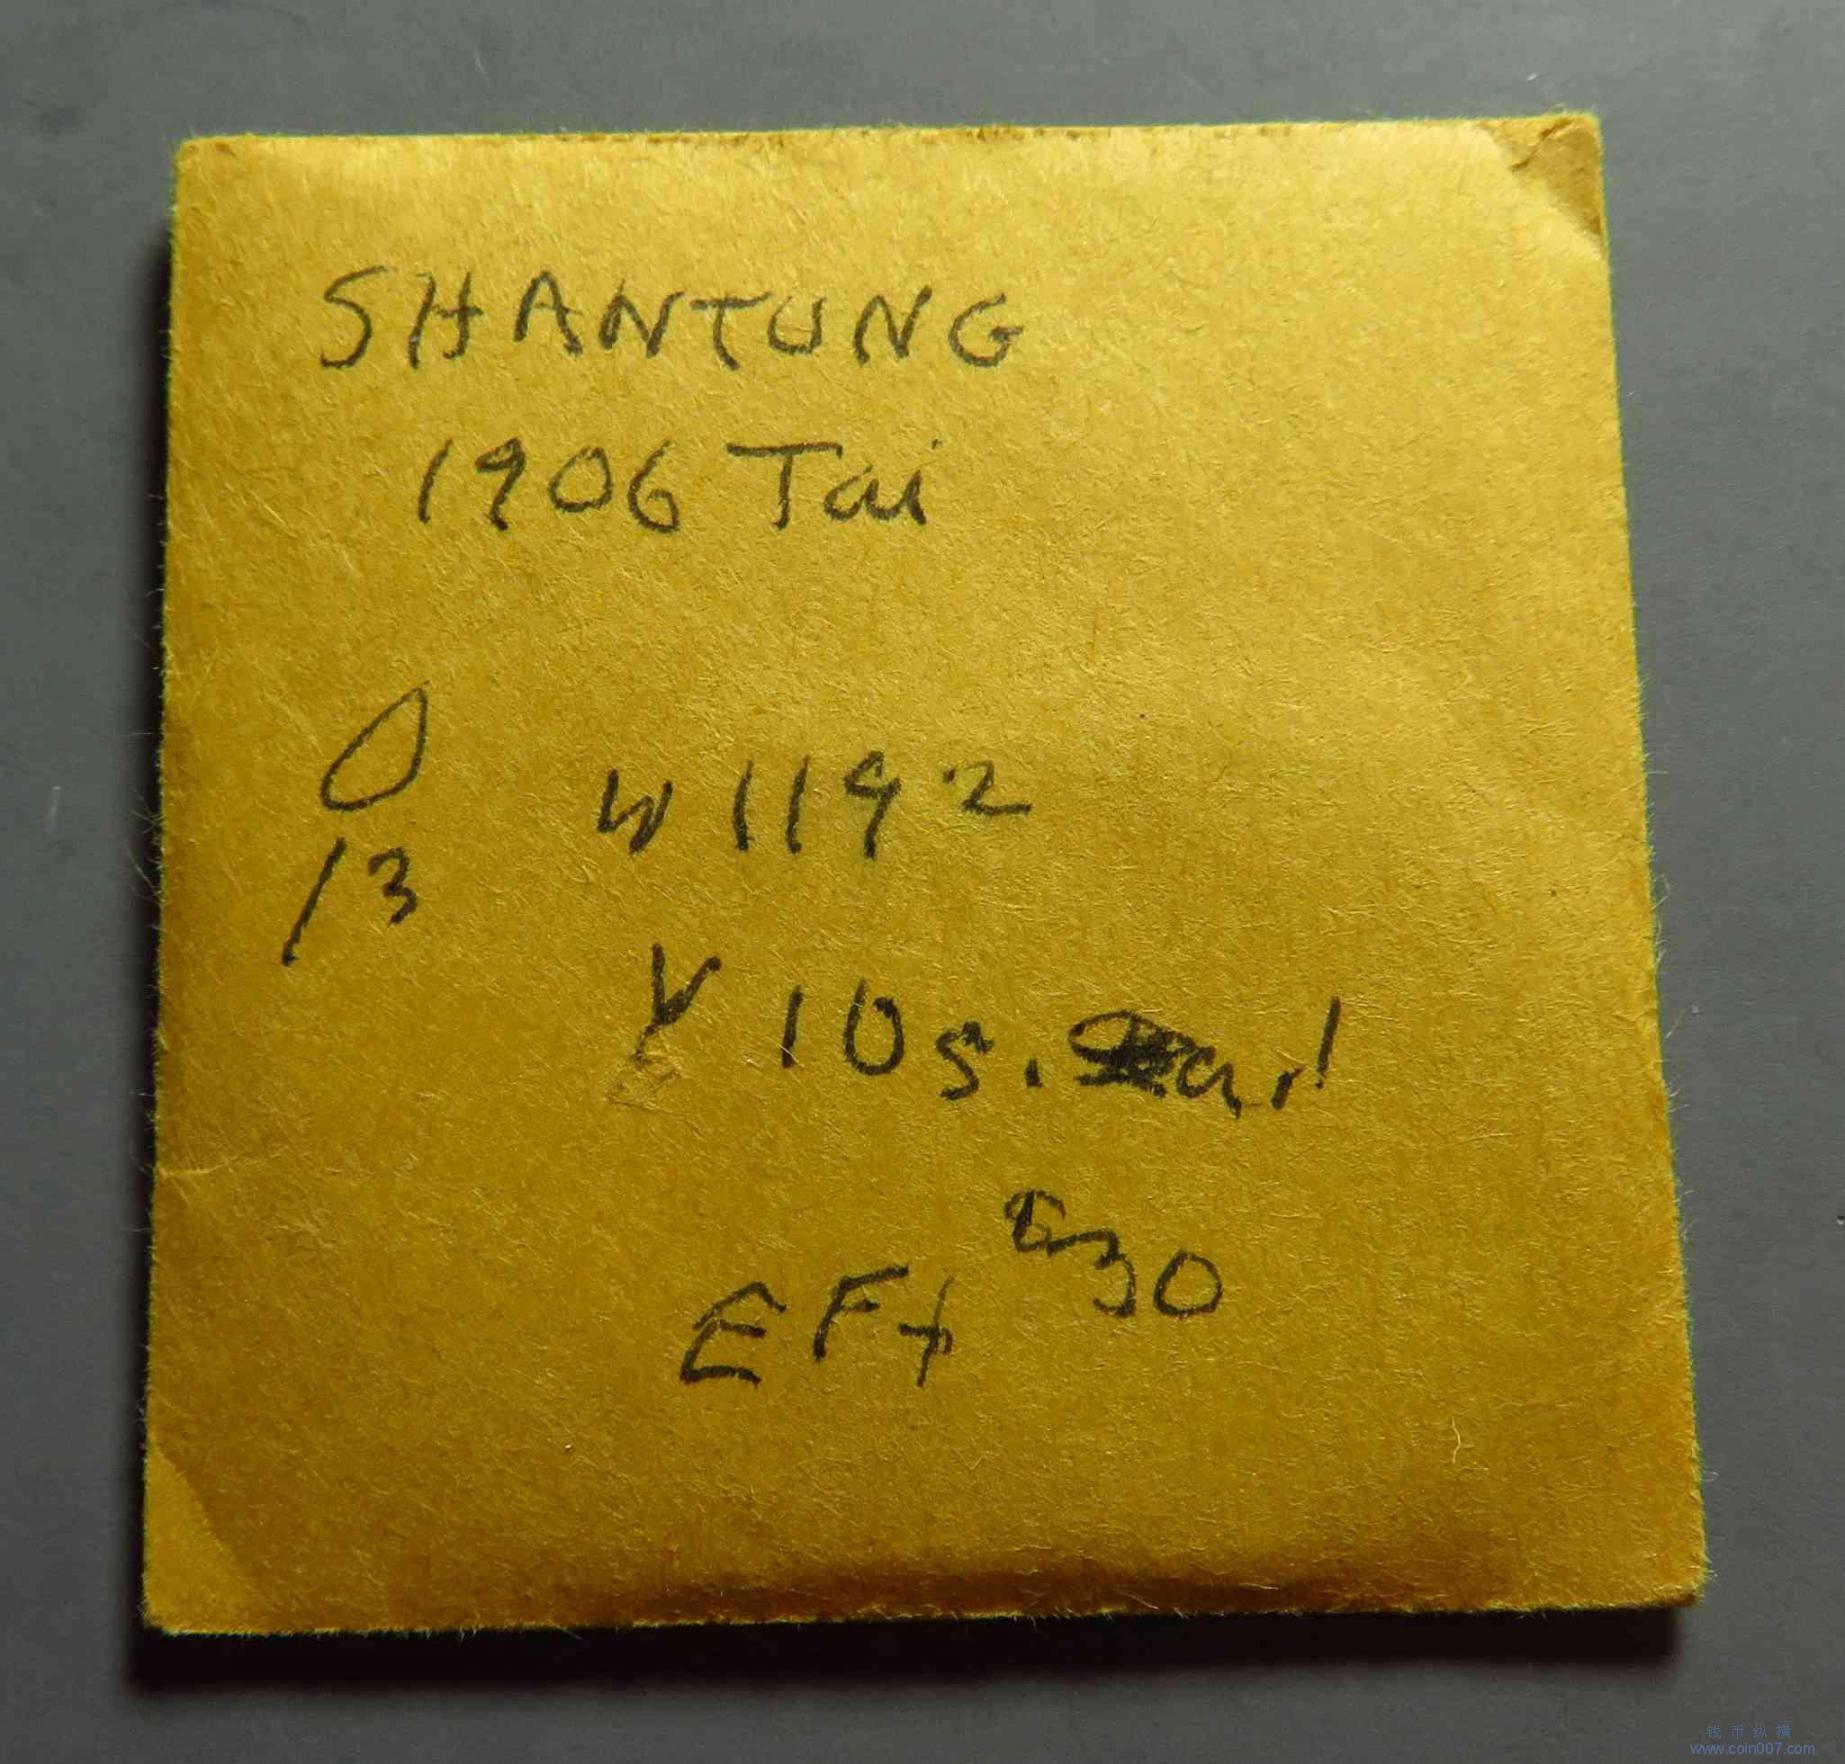 SHANTUNG
1906 Tai
0
13
W 1192
Y 10s.
30
EF+
钱币纵横
www.coin007.com